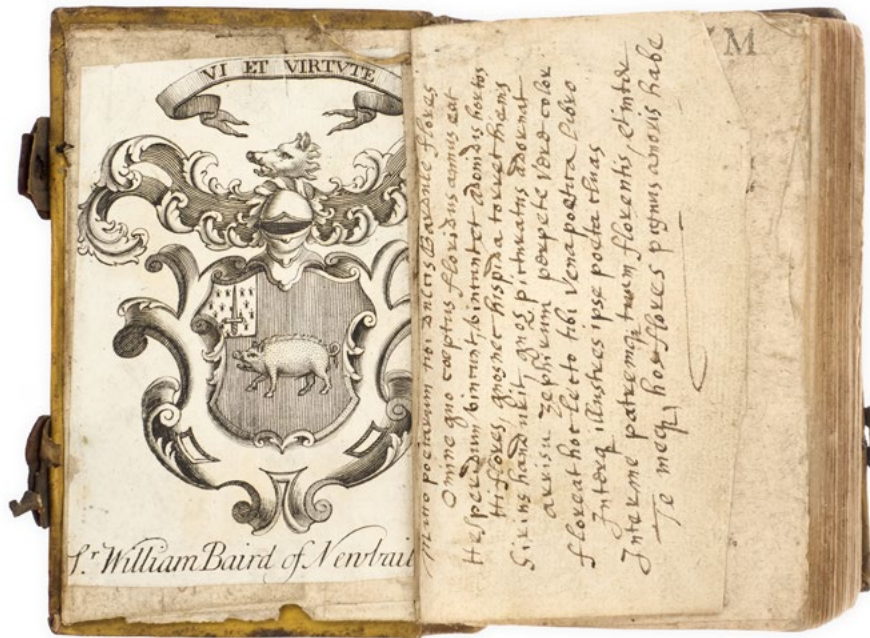 VI ET VIRTVTE
Sr. William Baird of Newbait
M
Mitto poetarum tibi dulcis Bardule flores
Omine quo coeptus floridus annus eat
Hesperidum vincunt, vincunt et Adonidis hortos
Hi flores, quos nec hispida torret hiems
Sirius haud urit, quos picturatus adornat
arrisu Zephirum perpete vere color
floreat hoc lecto tibi vena poetica libro
Interq illustres ipse poeta cluas
Inter me patremq; tuum florentis, et inter
Te meq; hos flores pignus amoris habe